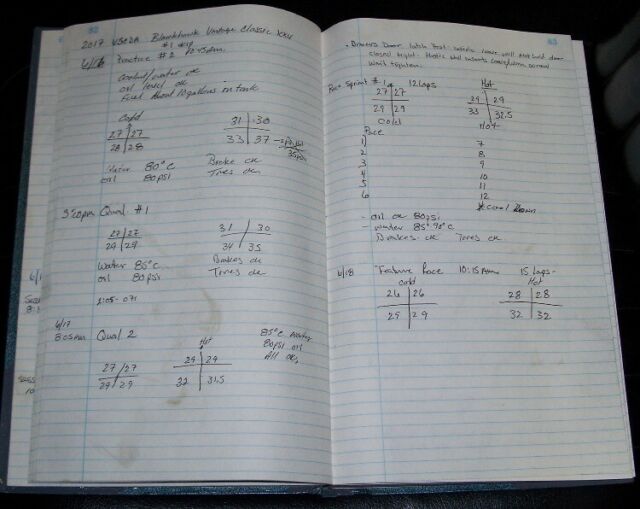 52
2017 VSCDA Blackhawk Vintage Classic XXV
#1 skip
6/16 Practice #2 10:45am
Coolant/water ok
oil level ok
Fuel About 10 gallons in tank
Cold
27 | 27
28 | 28
31 | 30
33 | 37
35psi
Water 80°C Brake ok
oil 80psi Tires ok
3:50pm Qual #1
27 | 27
29 | 29
31 | 30
34 | 35
Water 85°C Brakes ok
oil 80psi Tires ok
1:05.071
6/17
8:05am Qual 2
27 | 27
29 | 29
Hot
29 | 29
32 | 31.5
85°C water
80psi oil
All ok
53
Drivers Door latch
closed tight.
Race Sprint #1 12 Laps
27 | 27
29 | 29
Cold
Hot
29 | 29
33 | 32.5
Hot
Pace
1) 7
2 8
3 9
4 10
5 11
6 12
Cool Down
- oil ok 80psi
- water 85°-90°C
Brakes ok Tires ok
6/18 Feature Race 10:15 Am 15 Laps-
Cold
26 | 26
29 | 29
Hot
28 | 28
32 | 32
6/1